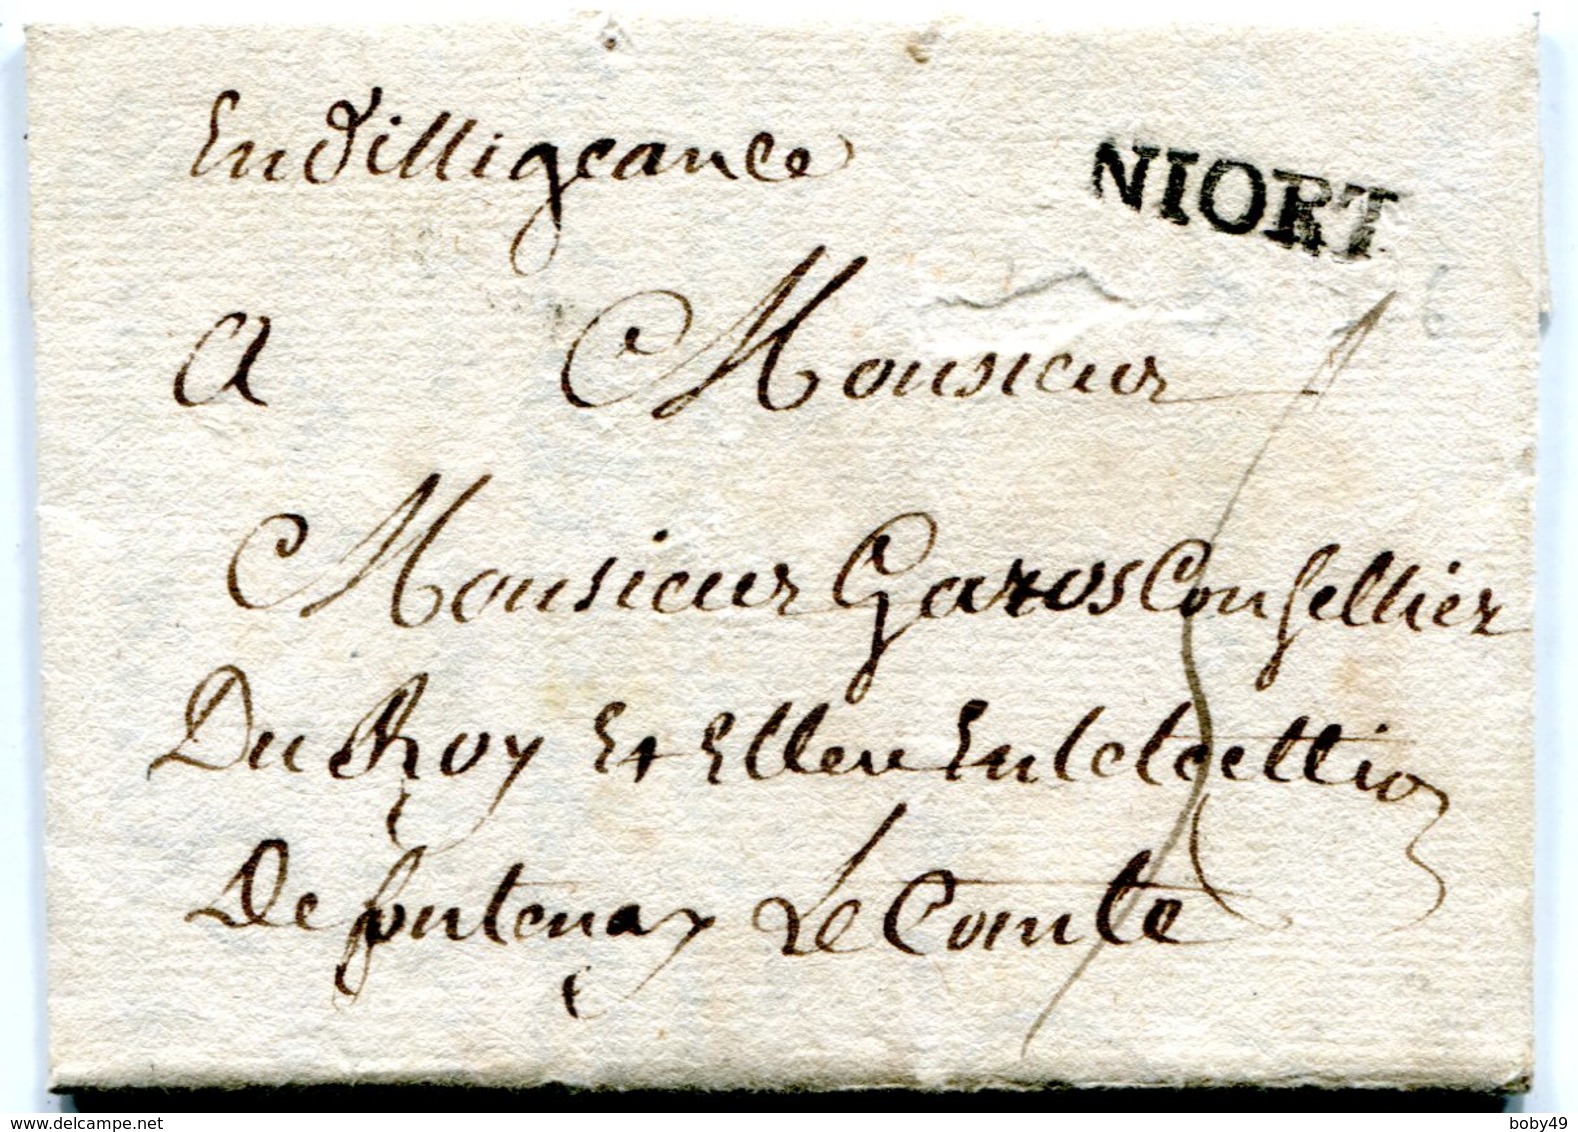 En dilligeance
NIORT
6
A Monsieur
Monsieur Garos Consellier
Du Roy Et Elleu En Lelection
De fontenay Le Comte
www.delcampe.net
boby49